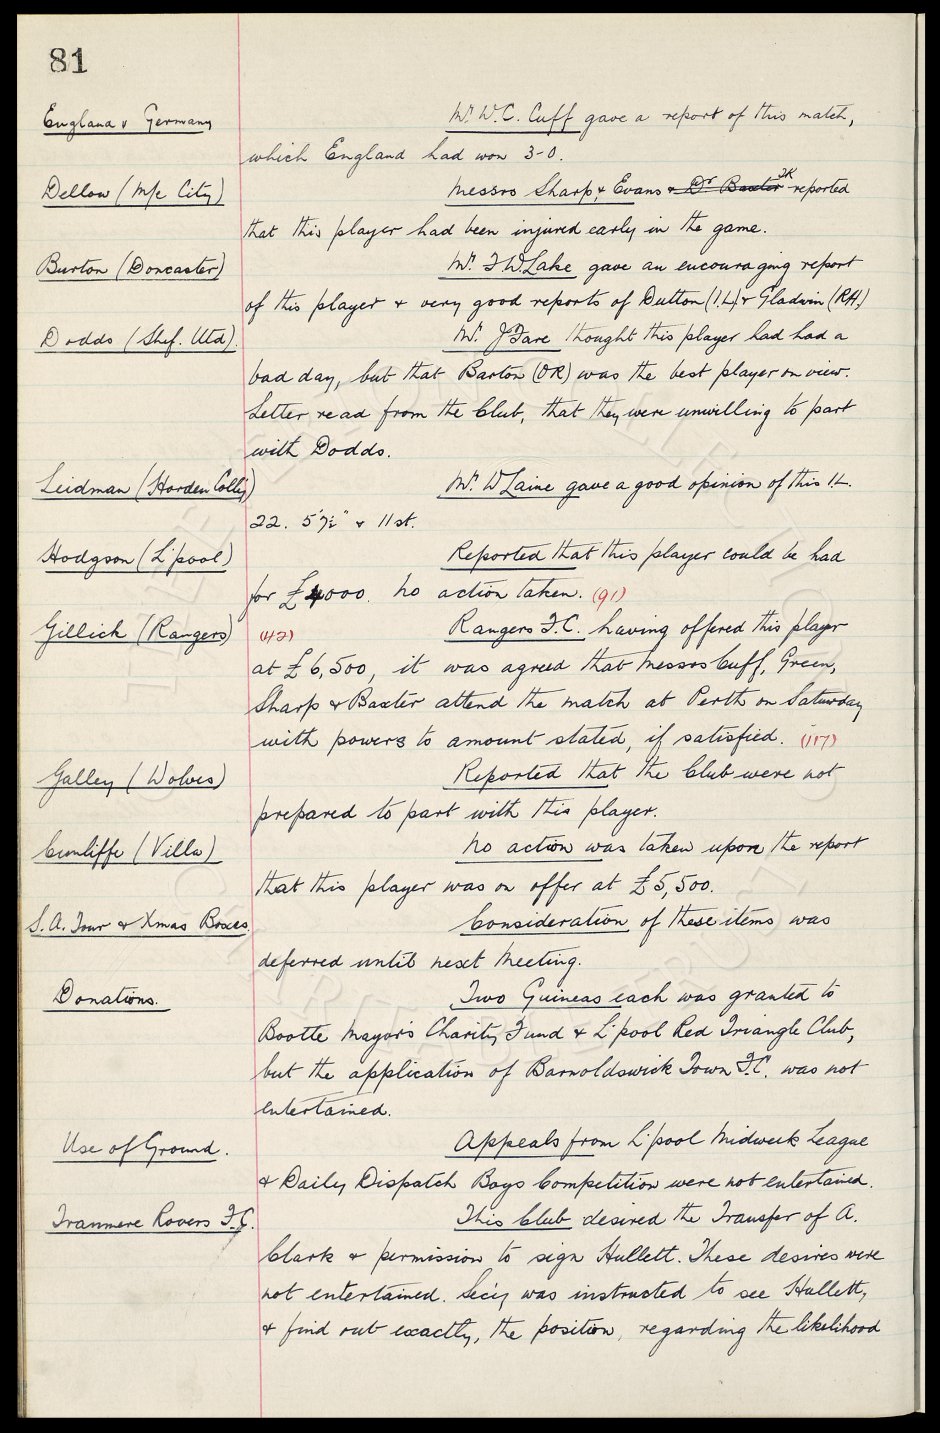 81
England v Germany Mr. W.C. Cuff gave a report of this match,
which England had won 3-0.
Dellow (M/c City) Messrs Sharp, & Evans & Dr Baxter JK reported
that this player had been injured early in the game.
Burton (Doncaster) Mr. J.W. Lake gave an encouraging report
of this player & very good reports of Dutton (I.L.) & Gladwin (RH.)
Dodds (Shef. Utd). Mr. J Fare thought this player had had a
bad day, but that Barton (OR) was the best player on view.
Letter read from the Club, that they were unwilling to part
with Dodds.
Leidman (Horden Colly) Mr. W Laine gave a good opinion of this IL.
22. 5'7½" & 11 st.
Hodgson (L'pool) Reported that this player could be had
for £4000. No action taken. (91)
Gillick (Rangers) (42) Rangers F.C. having offered this player
at £6,500, it was agreed that Messrs Cuff, Green,
Sharp & Baxter attend the match at Perth on Saturday
with powers to amount stated, if satisfied. (117)
Galley (Wolves) Reported that the Club were not
prepared to part with this player.
Cunliffe (Villa) No action was taken upon the report
that this player was on offer at £5,500.
S.A. Tour & Xmas Boxes Consideration of these items was
deferred until next Meeting.
Donations. Two Guineas each was granted to
Bootle Mayor's Charity Fund & L'pool Red Triangle Club,
but the application of Barnoldswick Town F.C. was not
entertained.
Use of Ground. Appeals from L'pool Midweek League
& Daily Dispatch Boys Competition were not entertained.
Tranmere Rovers F.C. This Club desired the Transfer of A.
Clark & permission to sign Hullett. These desires were
not entertained. Sec'y was instructed to see Hullett,
& find out exactly, the position, regarding the likelihood